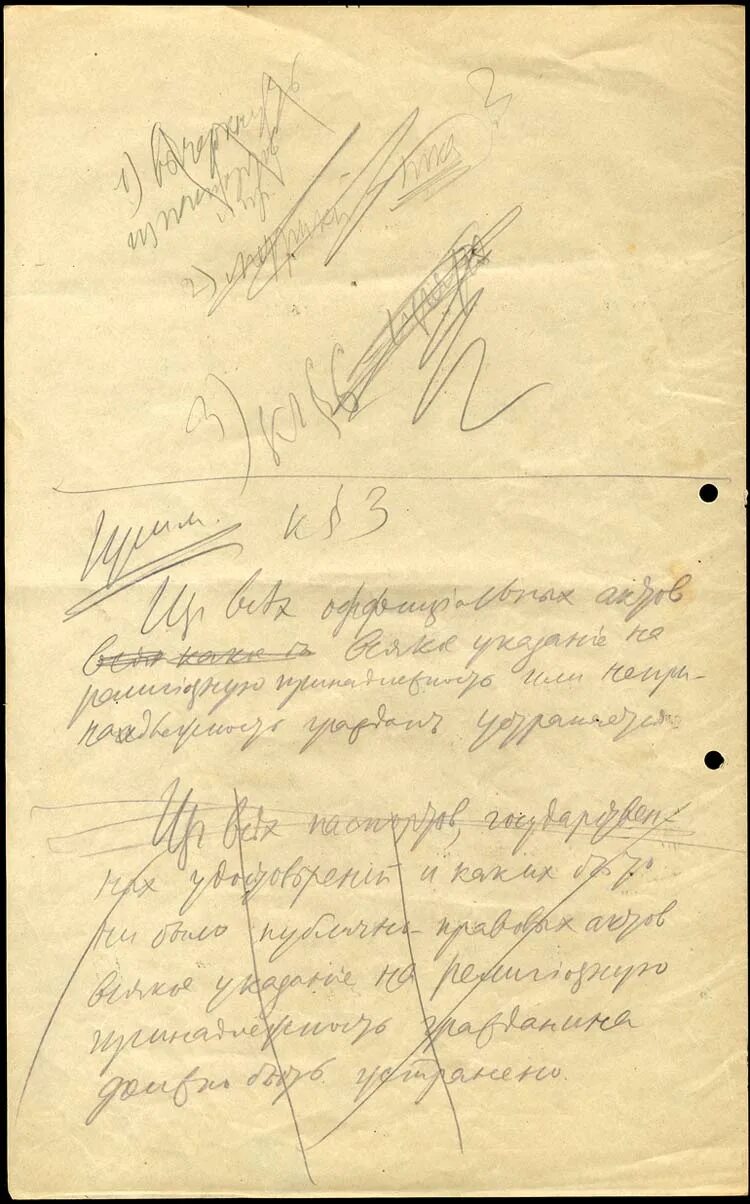 1) вычеркнуть
2)
3) к § 6
Прим. к § 3
Из всѣх оффиціальных актов
всяк како го всякое указаніе на
религіозную принадлежность или непри-
надлежность граждан устраняется.
Из всѣх паспортов, государствен-
ных удостовѣреній и каких бы то
ни было публично-правовых актов
всякое указаніе на религіозную
принадлежность гражданина
должно быть устранено.